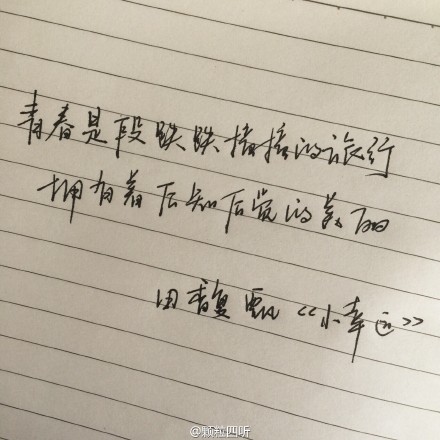 青春是段跌跌撞撞的旅行
拥有着后知后觉的美丽
田馥甄《小幸运》
@颗粒四听